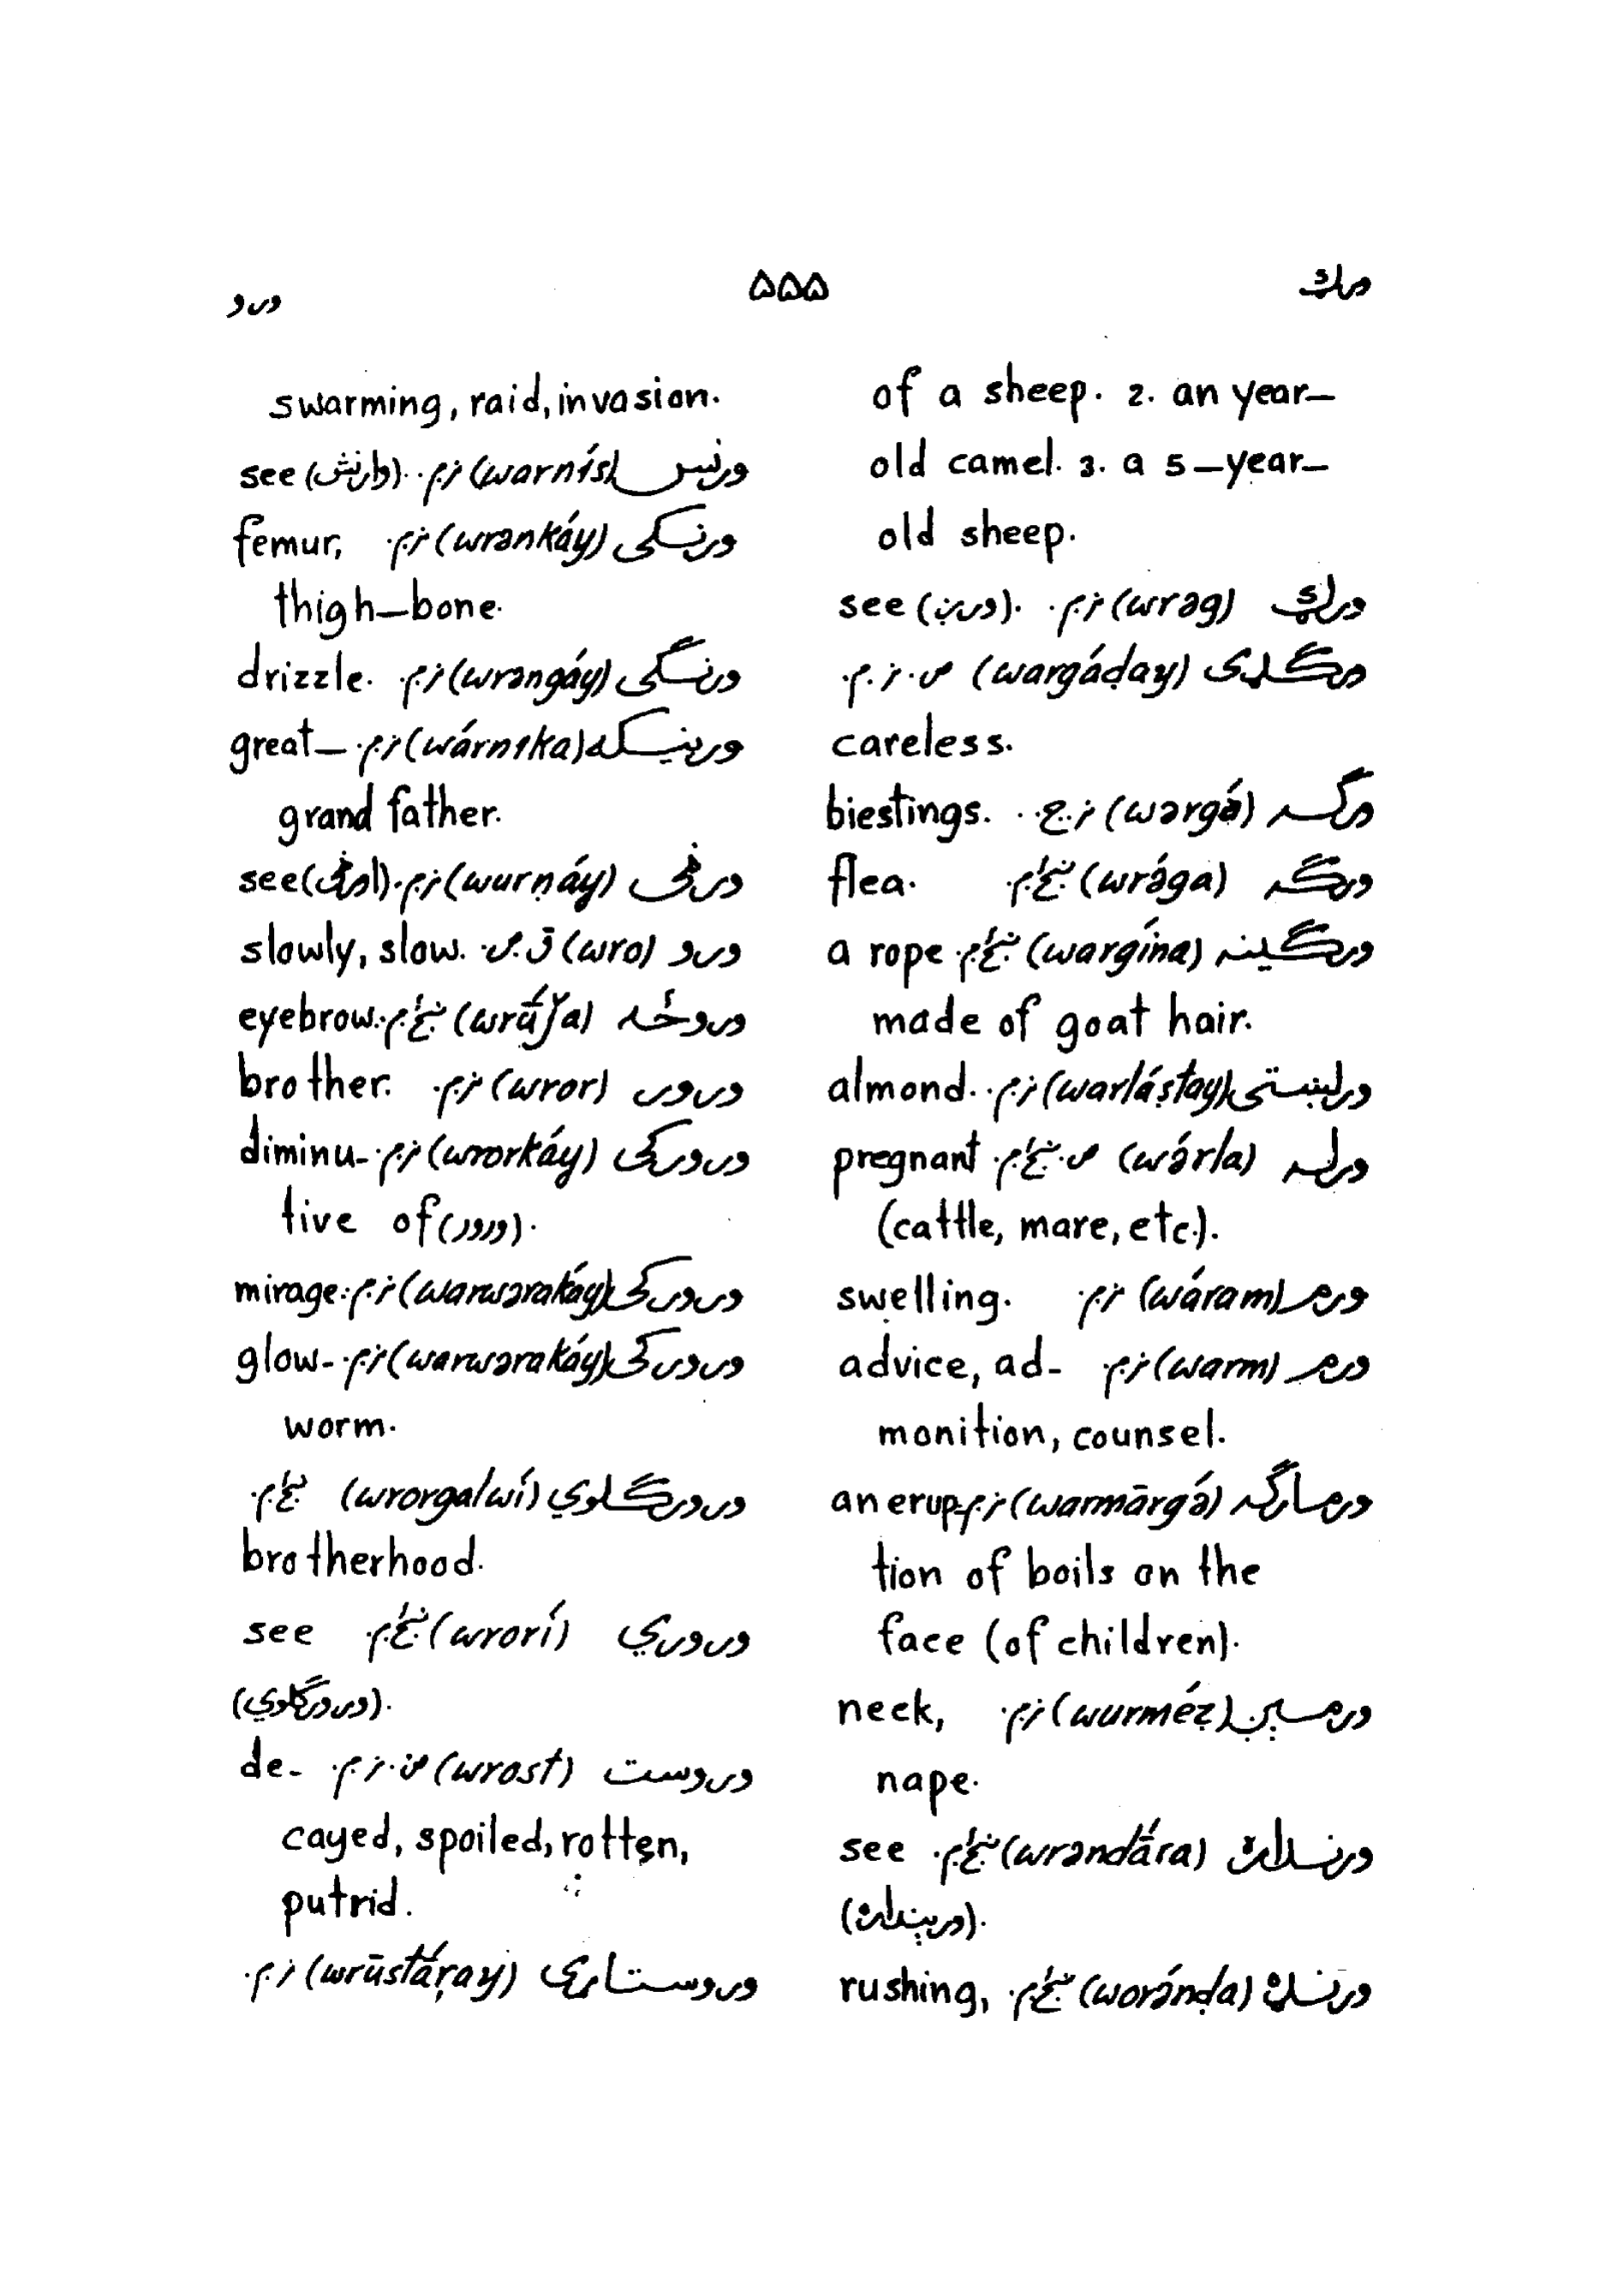 ورګ
۵۵۵
ورو
of a sheep. 2. an year—
old camel. 3. a 5—year—
old sheep.
ورګ (wrəg) نر.م. see (ورږ).
ورګډی (wargáḍay) ص.نر.م.
careless.
ورګه (wərgə́) نر.ج. biestings.
ورګه (wrə́ga) ښځ.م. flea.
ورګینه (wargína) ښځ.م. a rope
made of goat hair.
ورلښتی (warláṣtay) نر.م. almond.
ورله (wə́rla) ص.ښځ.م. pregnant
(cattle, mare, etc.).
ورم (wáram) نر.م. swelling.
ورم (warm) نر.م. advice, ad-
monition, counsel.
ورمارګه (warmārgə́) نر.م. an erup-
tion of boils on the
face (of children).
ورمېږ (wurméẓ) نر.م. neck,
nape.
ورنداره (wrəndā́ra) ښځ.م. see
(ورېنداره).
ورنډه (worə́nḍa) ښځ.م. rushing,
swarming, raid, invasion.
ورنس (warnís) نر.م. see (وارنش).
ورنکی (wrənkáy) نر.م. femur,
thigh—bone.
ورنګی (wrəngáy) نر.م. drizzle.
ورنیکه (wárnika) نر.م. great—
grand father.
ورڼی (wurṇáy) نر.م. see (اورڼی).
ورو (wro) ق.ص. slowly, slow.
وروځه (wrū́ǰa) ښځ.م. eyebrow.
ورور (wror) نر.م. brother.
ورورکی (wrorkáy) نر.م. diminu-
tive of (ورور).
ورورکی (warwərakáy) نر.م. mirage.
ورورکی (warwərakáy) نر.م. glow-
worm.
ورورګلوي (wrorgalwí) ښځ.م.
brotherhood.
وروري (wrorí) ښځ.م. see
(ورورګلوي).
وروست (wrost) ص.نر.م. de-
cayed, spoiled, rotten,
putrid.
وروستاړی (wrūstā́ṛay) نر.م.